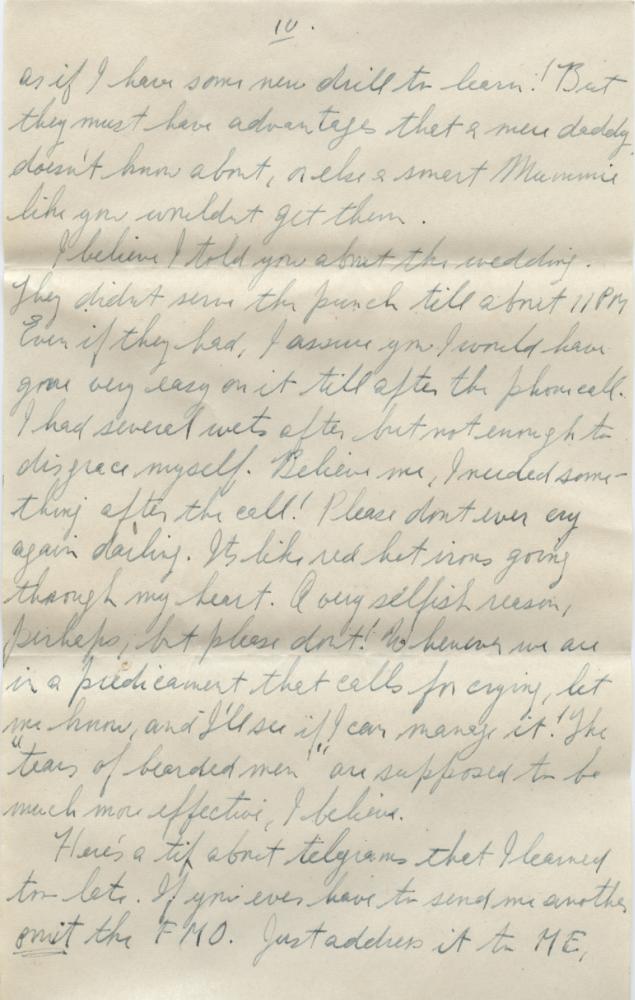 10.
as if I have some new drill to learn! But
they must have advantages that a mere daddy
doesn't know about, or else a smart Mummie
like you wouldn't get them.
I believe I told you about the wedding.
They didnt serve the punch till about 11 PM
Even if they had, I assure you I would have
gone very easy on it till after the phone call.
I had several wets after but not enough to
disgrace myself. Believe me, I needed some-
thing after the call! Please dont ever cry
again darling. Its like red hot irons going
through my heart. A very selfish reason,
perhaps, but please dont! Whenever we are
in a predicament that calls for crying, let
me know, and I'll see if I can manage it! The
"tears of bearded men" are supposed to be
much more effective, I believe.
Here's a tip about telgrams that I learned
too late. If you ever have to send me another
omit the FMO. Just address it to ME,